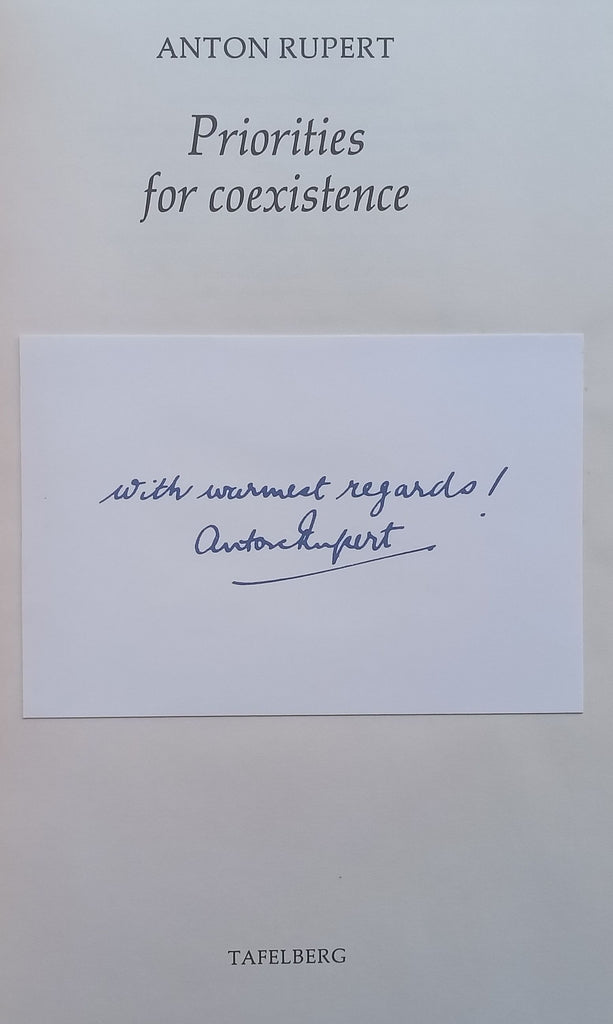 ANTON RUPERT
Priorities
for coexistence
With warmest regards!
Anton Rupert
TAFELBERG